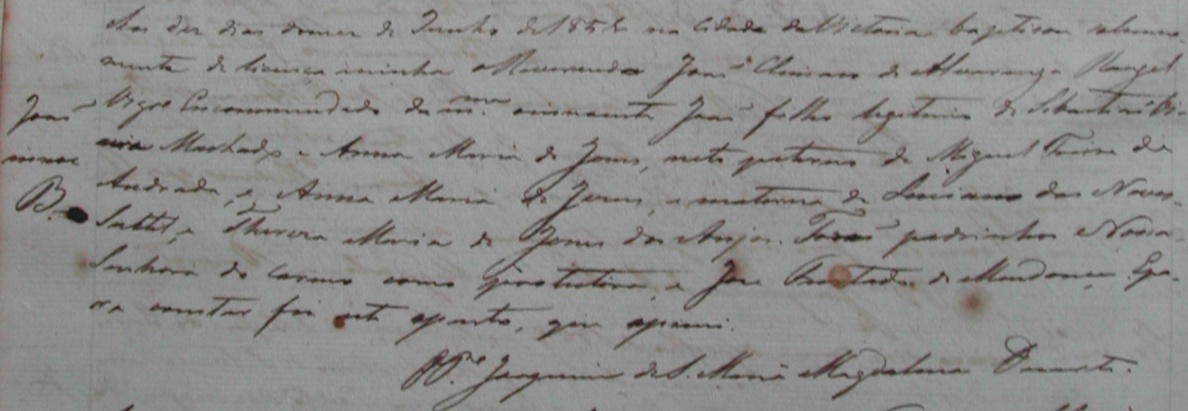 Aos dez dias do mez de Junho de 1858 na Cidade da Victoria baptisou solemne-
mente de licença minha o Reverendo João Clímaco de Alvarenga Rangel
João
Vigro Encommendado da m.ma ao innocente João filho legitimo de Sebastião Vi-
innoc
eira Machado, e Anna Maria de Jesus, neto paterno de Miguel de
B.
Andrade, e Anna Maria de Jesus, e materno de Luciano das Neves
Subtil, e Thereza Maria de Jesus dos Anjos. Forão padrinhos Nossa
Senhora do Carmo como protectora, e José Furtado de Mendonça. E pa-
ra constar fiz este assento, que assinei.
O P.e Joaquim de S. Maria Magdalena Duarte.